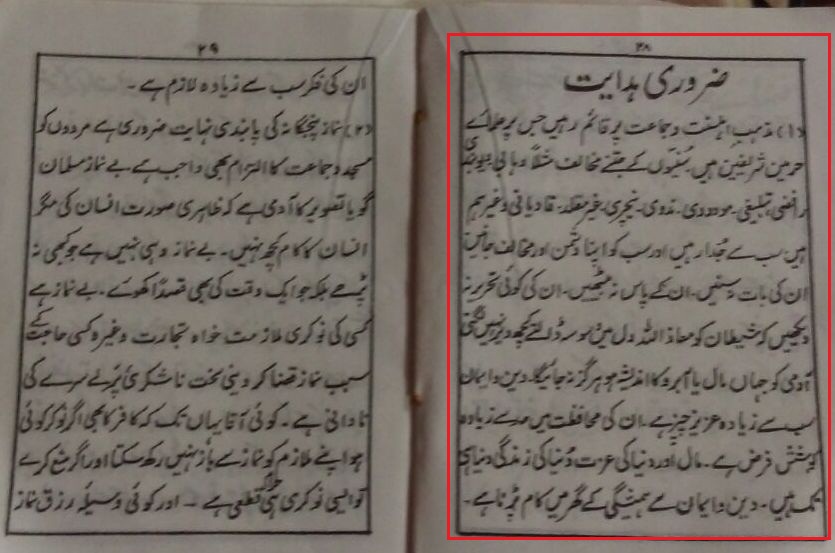 ۲۸
ضروری ہدایت
(۱) مذہب اہلسنت وجماعت پر قائم رہیں جس پر علمائے
حرمین شریفین ہیں سُنّیوں کے جتنے مخالف مثلاً وہابی دیوبندی
رافضی، تبلیغی، مودودی، ندوی، نیچری، غیر مقلد، قادیانی وغیرہم
ہیں سب سے جُدا رہیں اور سب کو اپنا دشمن اور مخالف جانیں
ان کی بات نہ سنیں۔ ان کے پاس نہ بیٹھیں۔ ان کی کوئی تحریر نہ
دیکھیں کہ شیطان کو معاذ اللہ دل میں وسوسہ ڈالتے کچھ دیر نہیں لگتی
آدمی کو جہاں مال یا آبرو کا اندیشہ ہو ہرگز نہ جائیگا۔ دین وایمان
سب سے زیادہ عزیز چیز ہے۔ ان کی محافظت میں حد سے زیادہ
کوشش فرض ہے۔ مال اور دنیا کی عزت دُنیا کی زندگی دنیا ہی
تک ہیں۔ دین وایمان سے ہمیشگی کے گھر میں کام پڑنا ہے۔
۲۹
ان کی فکر سب سے زیادہ لازم ہے۔
(۲) نماز پنجگانہ کی پابندی نہایت ضروری ہے مردوں کو
مسجد وجماعت کا التزام بھی واجب ہے بے نماز مسلمان
گویا تصویر کا آدمی ہے کہ ظاہری صورت انسان کی مگر
انسان کا کام کچھ نہیں۔ بے نماز وہی نہیں ہے جو کبھی نہ
پڑھے بلکہ جو ایک وقت کی بھی قصداً کھوئے۔ بے نماز ہے
کسی کی نوکری ملازمت خواہ تجارت وغیرہ کسی حاجت کے
سبب نماز قضا کر دینی سخت ناشکری پرلے سرے کی
نادانی ہے۔ کوئی آقا یہاں تک کہ کافر کا بھی اگر نوکر کوئی
ہو اپنے ملازم کو نماز سے باز نہیں رکھ سکتا اور اگر منع کرے
تو ایسی نوکری ہی قطعی ہے۔ اور کوئی وسیلۂ رزق نماز